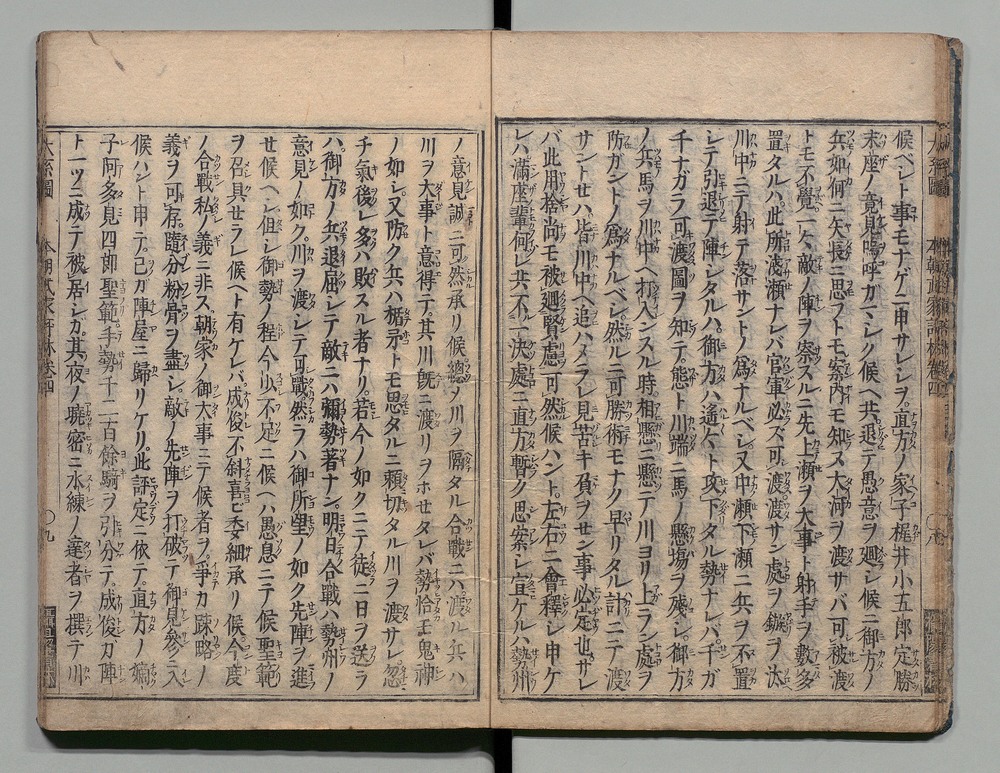 候ベシト事モナゲニ申サレシヲ。直方ノ家子梶井小五郎定勝
末座ノ意見嗚呼ガマシク候ヘ共退テ愚意ヲ廻シ候ニ御方ノ
兵如何ニ矢長ニ思フトモ案内モ知ヌ大河ヲ渡サバ可被渡
トモ不覺一人敵ノ陣ヲ察スルニ先上瀬ヲ大事ト射手ヲ數多
置タルハ此所淺瀬ナレバ官軍必ズ可渡渡サン處ヲ鏃ヲ汰
川中ニテ射テ落サントノ爲ナルベシ又中瀬下瀬ニ兵ヲ不置
シテ引退テ陣シタルハ御方ハ遙ケト攻下タル勢ナレバ千ガ
千ナガラ可渡圖ヲ知テ。態ト川端ニ馬ノ懸塲ヲ殘シ。御方
ノ兵馬ヲ川中ヘ打入ンスル時。相懸ニ懸テ川ヨリ上ラン處ヲ
防ガントノ爲ナルベシ。然ルニ可勝術モナク早リタル計ニテ渡
サントセハ。皆川中ヘ追ハメラレ見苦キ負ヲセン事必定也。サレ
バ此用捨尚モ被廻賢慮可然候ハント。左右ニ會釋シ申ケ
レハ滿座ノ輩何レ共不一決處ニ直方暫ク思案シ宣ケルハ勢州
ノ意見誠ニ可然承リ候總ヲ川ヲ隔タル合戰ニハ渡ル兵ハ
川ヲ大事ト意得テ。其川既ニ渡リヲホセタレバ勢恰モ鬼神
ノ如シ又防ク兵ハ楯示トモ思タルニ賴切タル川ヲ渡サレ忽
チ氣後レ多ハ敗スル者ナリ。若今ノ如クニテ徒ニ日ヲ送ラ
ハ。御方ノ兵退屈シテ敵ニハ彌勢著ナン。明日合戰ハ勢州ノ
意見ノ如ク。川ヲ渡シテ可戰然ラハ御所望ノ如ク先陣ヲ進
セ候ヘシ但シ御勢ノ程今少不足ニ候ヘハ愚息ニテ候聖範
ヲ召具セラレ候ヘト有ケレバ。成俊不斜喜ヒ委細承リ候今度
ノ合戰私ノ義ニ非ス。朝家ノ御大事ニテ候者ヲ。爭カ疎略ノ
義ヲ可存。隨分粉骨ヲ盡シ敵ノ先陣ヲ打破テ御見參ニ入
候ハント申テ。己カ陣屋ニ歸リケリ。此評定ニ依テ。直方ノ嫡
子阿多見四郎聖範手勢千二百餘騎ヲ引分テ。成俊ガ陣
ト一ツニ成テ被居シカ。其夜ノ曉密ニ水練ノ達者ヲ撰テ川
大系圖
本朝武家評林卷四
〇九